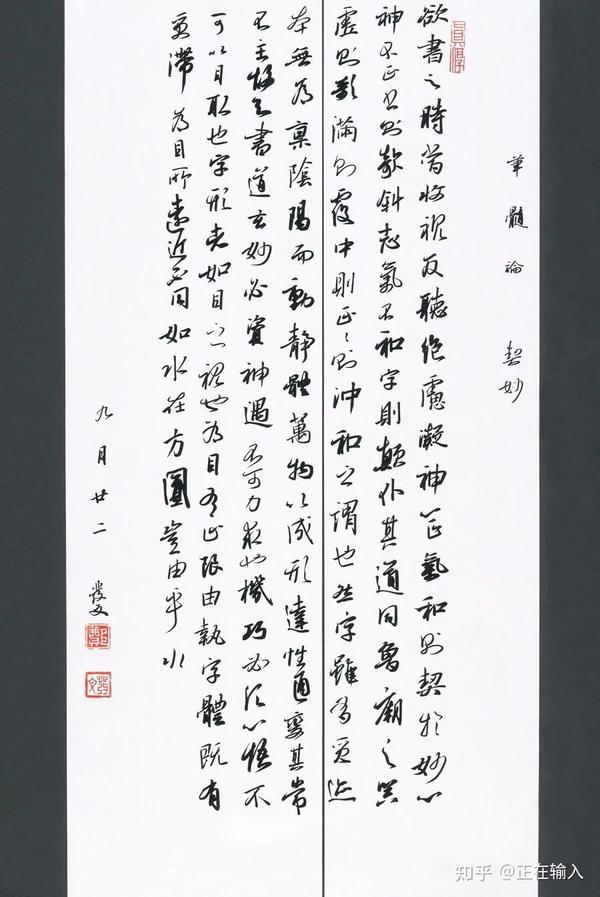 筆髓論 契妙
欲書之時當收視反聽絕慮凝神心正氣和則契於妙心
神不正書則欹斜志氣不和字則顛仆其道同魯廟之器
虛則欹滿則覆中則正〻則沖和之謂也然字雖有質迹
本無為稟陰陽而動靜體萬物以成形達性通變其常
不主故知書道玄妙必資神遇不可力求也機巧必須心悟不
可以目取也字形者如目之視也為目有止限由執字體既有
質滯為目所遠近不同如水在方圓豈由乎水
九月廿二
知乎 @正在输入